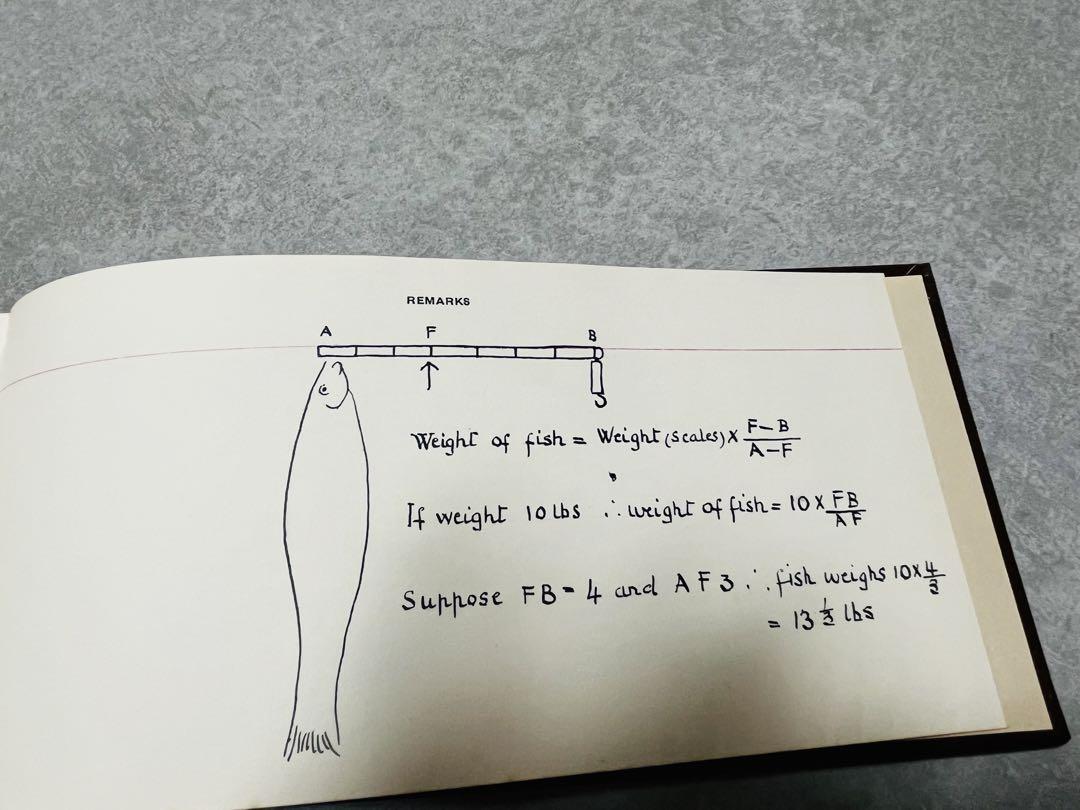 REMARKS
A F B
Weight of fish = Weight (scales) × F–B / A–F
If weight 10 lbs ∴ weight of fish = 10 × FB / AF
Suppose FB = 4 and AF 3 ∴ fish weighs 10 × 4/3
= 13 1/3 lbs